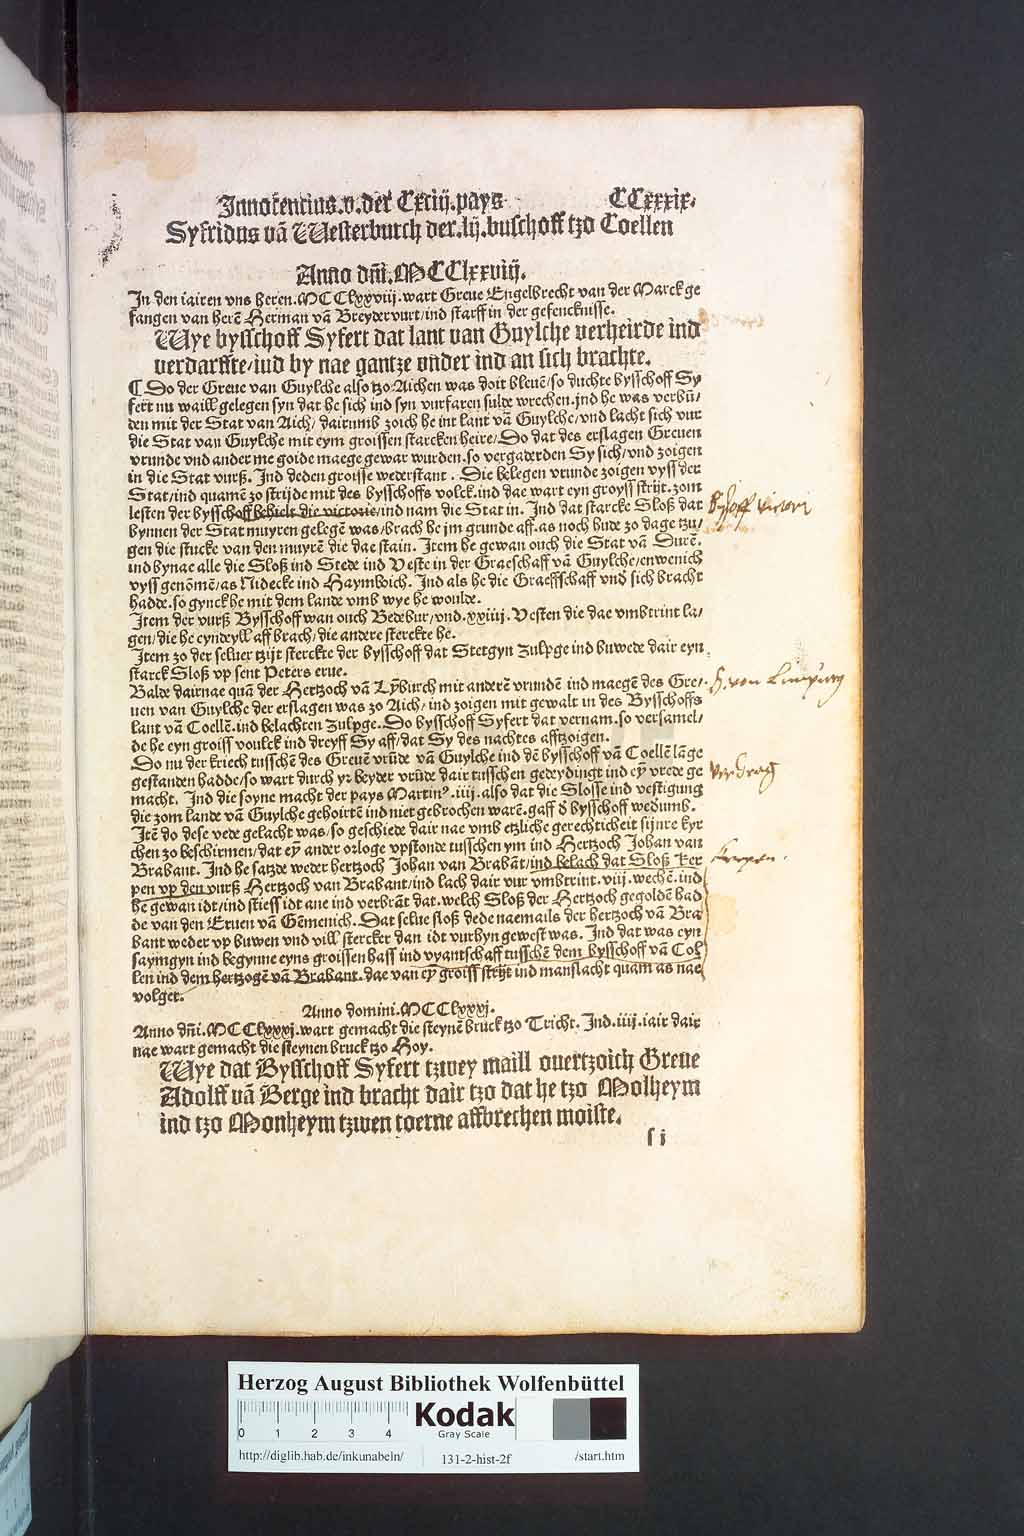 Innocencius.v.der Cxciij.pays CCxxxix.
Syfridus vā Westerburch der.lij.buschoff tzo Coellen
Anno dñi.MCClxxviij.
In den iairen vns heren.MCClxxviij.wart Greue Engelbrecht van der Marck ge
fangen van herē Herman vā Breydervurt/ind starff in der gefencknisse.
Wye bysschoff Syfert dat lant van Guylche verheirde ind
verdarffte/ind by nae gantze vnder ind an sich brachte.
¶ Do der Greue van Guylche also tzo Aichen was doit bleuē/so duchte bysschoff Sy
fert nu waill gelegen syn dat he sich ind syn vurfaren sulde wrechen.ind he was verbū/
den mit der Stat van Aich/dairumb zoich he int lant vā Guylche/vnd lacht sich vur
die Stat van Guylche mit eym groissen starcken heire/Do dat des erslagen Greuen
vrunde vnd ander me goide maege gewar wurden.so vergaderden Sy sich/vnd zoigen
in die Stat vurß. Ind deden groisse wederstant. Die belegen vrunde zoigen vyss der
Stat/ind quamē zo strijde mit des bysschoffs volck.ind dae wart eyn groyss strijt.zom
lesten der bysschoff behielt die victorie/ind nam die Stat in. Ind dat starcke Sloß dat
bynnen der Stat muyren gelegē was/brach he im grunde aff.as noch hude zo dage tzu/
gen die stucke van den muyrē die dae stain. Item he gewan ouch die Stat vā Durē.
ind bynae alle die Sloß ind Stede ind Veste in der Graeschaff vā Guylche/enwenich
vyss genōmē/as Nidecke ind Haymboich. Ind als he die Graeffschaff vnd sich bracht
hadde.so gynck he mit dem lande vmb wye he woulde.
Item der vurß Bysschoff wan ouch Bedebur/vnd.xxiiij.Vesten die dae vmbtrint la/
gen/die he eyndeyll aff brach/die andere sterckte he.
Item zo der seluer tzijt sterckte der bysschoff dat Stetgyn Zulpge ind buwede dair eyn
starck Sloß vp sent Peters erue.
Balde dairnae quā der Hertzoch vā Lȳburch mit anderē vrundē ind maegē des Gre/
uen van Guylche der erslagen was zo Aich/ind zoigen mit gewalt in des Bysschoffs
lant vā Coellē.ind belachten Zulpge. Do bysschoff Syfert dat vernam.so versamel/
de he eyn groiss voulck ind dreyff Sy aff/dat Sy des nachtes afftzoigen.
Do nu der kriech tusschē des Greuē vrūde vā Guylche ind dē bysschoff vā Coellē lāge
gestanden hadde/so wart durch yr beyder vrūde dair tusschen gedeydingt ind eȳ vrede ge
macht. Ind die soyne macht der pays Martin⁹.iiij.also dat die Slosse ind vestigung
die zom lande vā Guylche gehoirtē ind niet gebrochen warē.gaff d bysschoff wedumb.
Itē do dese vede gelacht was/so geschiede dair nae vmb etzliche gerechticheit sijnre kyr
chen zo beschirmen/dat eȳ ander orloge vpstonde tusschen ym ind Hertzoch Johan van
Brabant. Ind he satzde weder hertzoch Johan van Brabāt/ind belach dat Sloß Ker
pen vp den vurß Hertzoch van Brabant/ind lach dair vur vmbtrint.viij.wechē.ind
he gewan idt/ind stiess idt ane ind verbrāt dat.welch Sloß der Hertzoch gegoldē had
de van den Eruen vā Gēmenich. Dat selue sloß dede naemails der hertzoch vā Bra
bant weder vp buwen vnd vill stercker dan idt vurhyn gewest was. Ind dat was eyn
saymgyn ind begynne eyns groissen hass ind vyantschaff tusschē dem bysschoff vā Coel
len ind dem hertzogē vā Brabant.dae van eȳ groiss strijt ind manslacht quam as nae
volget.
Anno domini.MCClxxxj.
Anno dñi.MCClxxxj.wart gemacht die steynē bruck tzo Tricht. Ind.iiij.iair dair
nae wart gemacht die steynen bruck tzo Hoy.
Wye dat Bysschoff Syfert tzwey maill ouertzoich Greue
Adolff vā Berge ind bracht dair tzo dat he tzo Molheym
ind tzo Monheym tzwen toerne affbrechen moiste.
s i
Bischoff victori
H. von Limpurg
Verdrag
Kerpen.
Herzog August Bibliothek Wolfenbüttel
0 1 2 3 4
Kodak
Gray Scale
http://diglib.hab.de/inkunabeln/ 131-2-hist-2f /start.htm